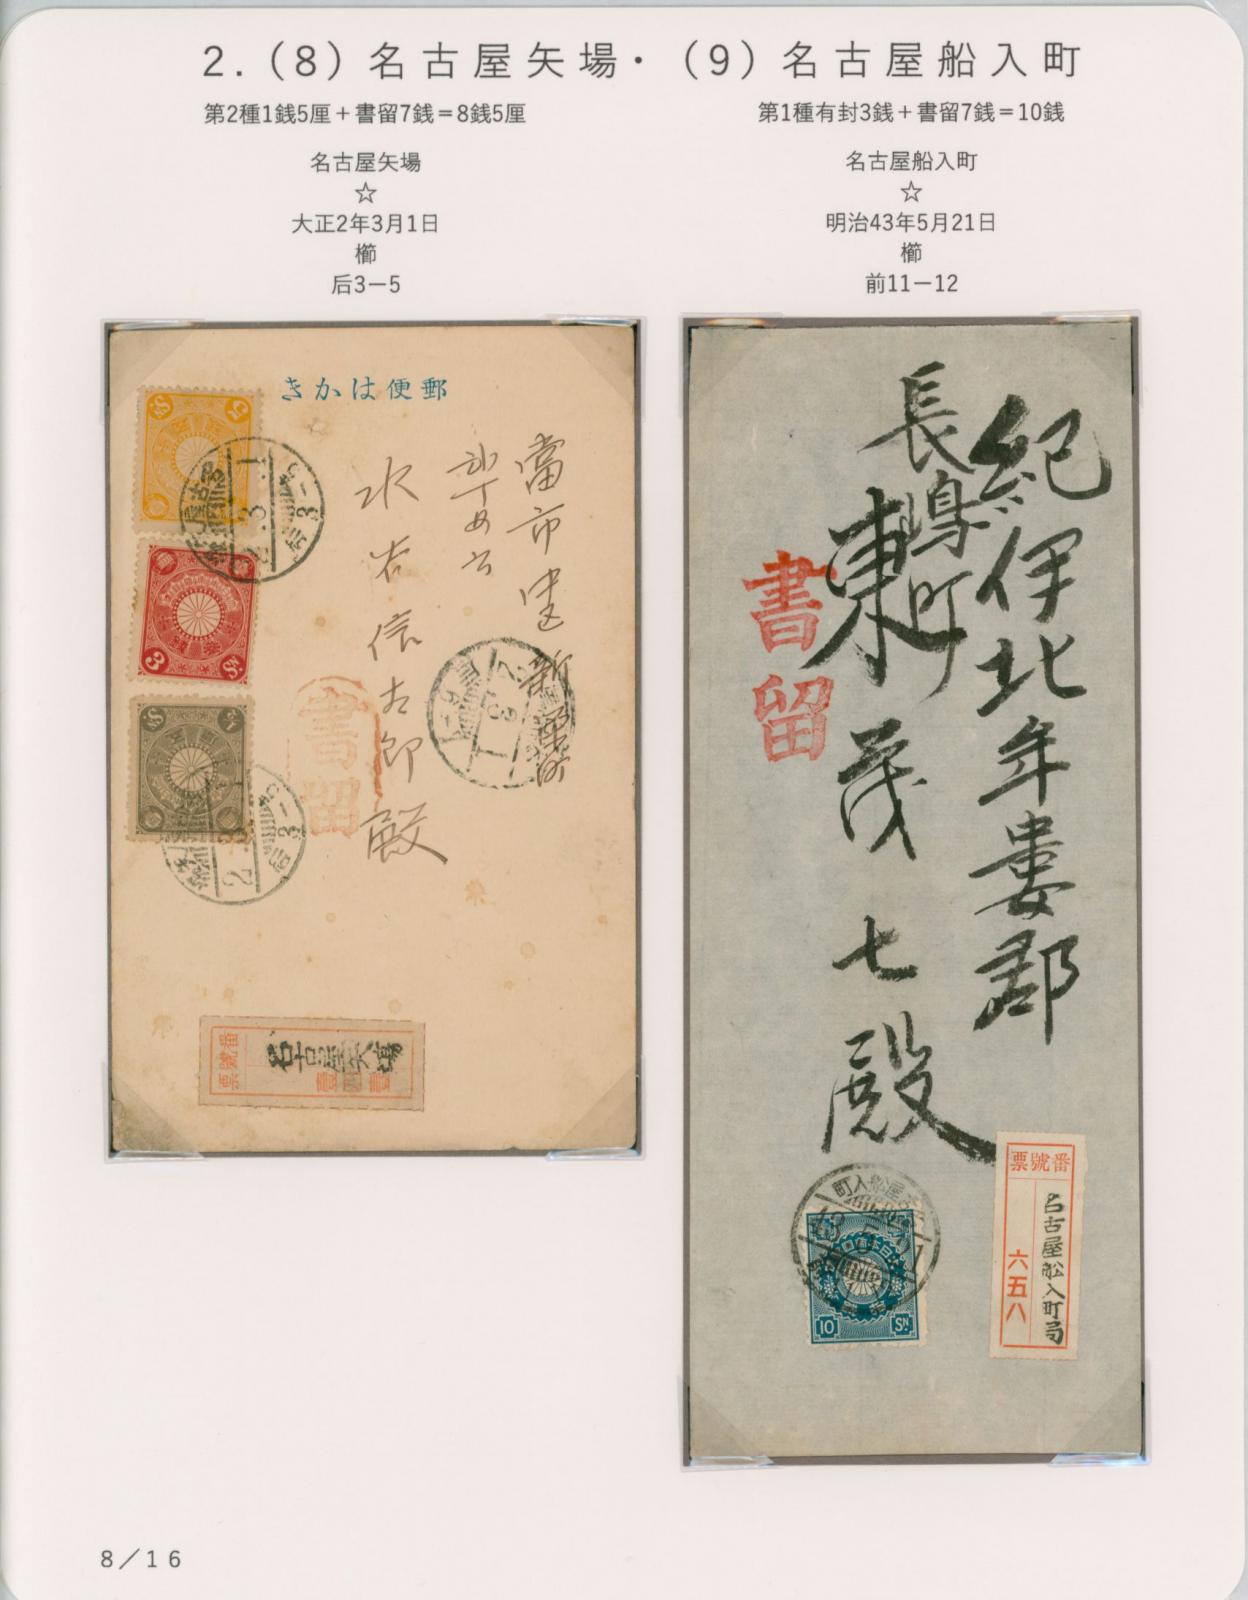 2.(8)名古屋矢場・(9)名古屋船入町
第2種1銭5厘＋書留7銭＝8銭5厘
名古屋矢場
☆
大正2年3月1日
櫛
后3－5
第1種有封3銭＋書留7銭＝10銭
名古屋船入町
☆
明治43年5月21日
櫛
前11－12
きかは便郵
當市
水谷信太郎殿
書留
3 Sn
票號番
名古屋矢場
紀伊北牟婁郡
長嶋町
東茂七殿
書留
町入船屋
43 5 21
10 Sn
票號番
名古屋船入町局
六五八
8／16